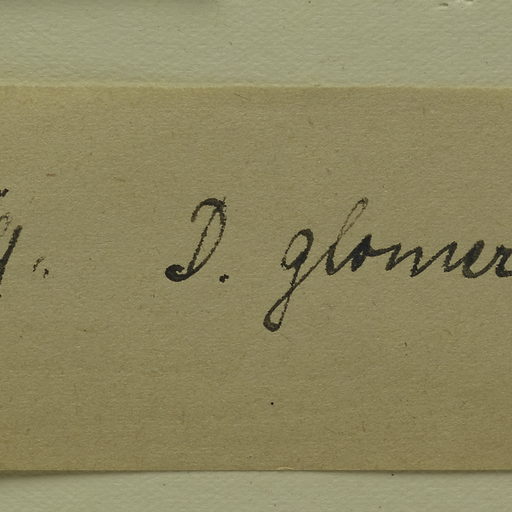 D. glomer